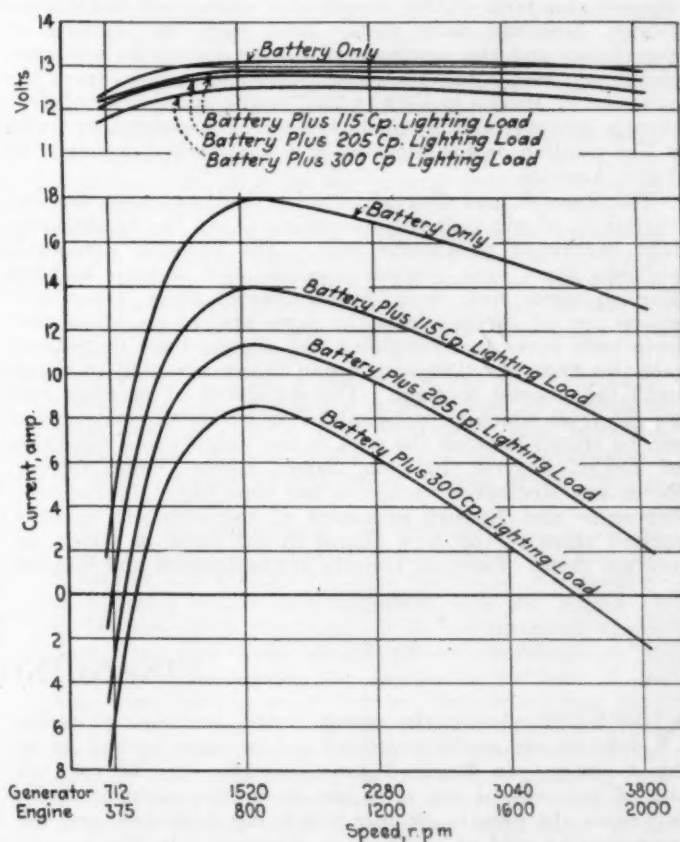 14
13
12
11
Volts
Battery Only
Battery Plus 115 Cp. Lighting Load
Battery Plus 205 Cp. Lighting Load
Battery Plus 300 Cp. Lighting Load
18
16
14
12
10
8
6
4
2
0
2
4
6
8
Current, amp.
Battery Only
Battery Plus 115 Cp. Lighting Load
Battery Plus 205 Cp. Lighting Load
Battery Plus 300 Cp. Lighting Load
Generator 712 1520 2280 3040 3800
Engine 375 800 1200 1600 2000
Speed, r.p.m